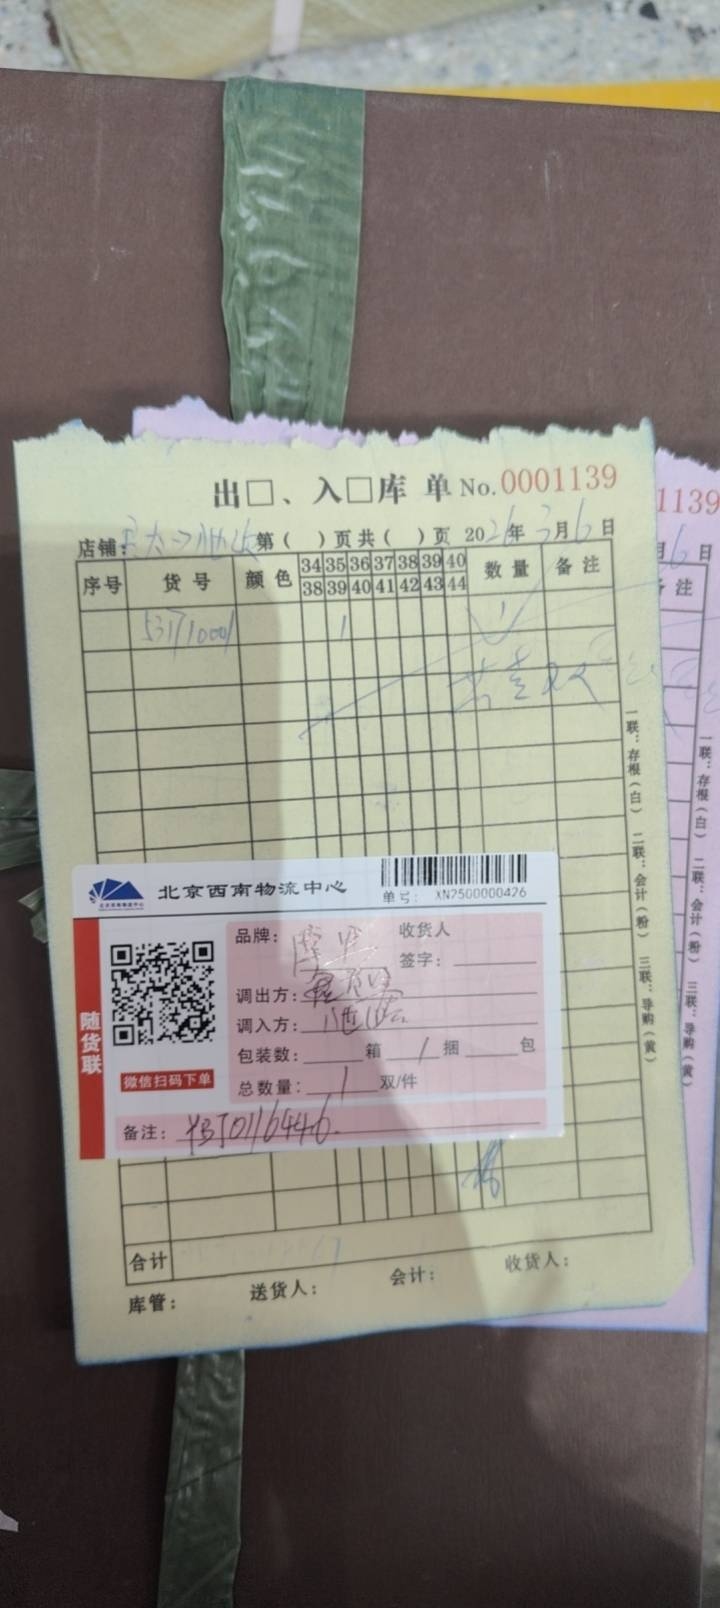 出□、入□库单 No.0001139
店铺: 第( )页共( )页 2026年3月6日
序号 货号 颜色 34 35 36 37 38 39 40 数量 备注
38 39 40 41 42 43 44
531710001 1 1
共壹双
一联：存根（白） 二联：会计（粉） 三联：导购（黄）
北京西南物流中心
单号: XN2500000426
随货联
微信扫码下单
品牌:
收货人
签字:
调出方:
调入方:
包装数: 箱 1 捆 包
总数量: 1 双/件
备注: YBJ0116446.
合计
库管: 送货人: 会计: 收货人:
1139
月6日
备注
一联：存根（白） 二联：会计（粉） 三联：导购（黄）